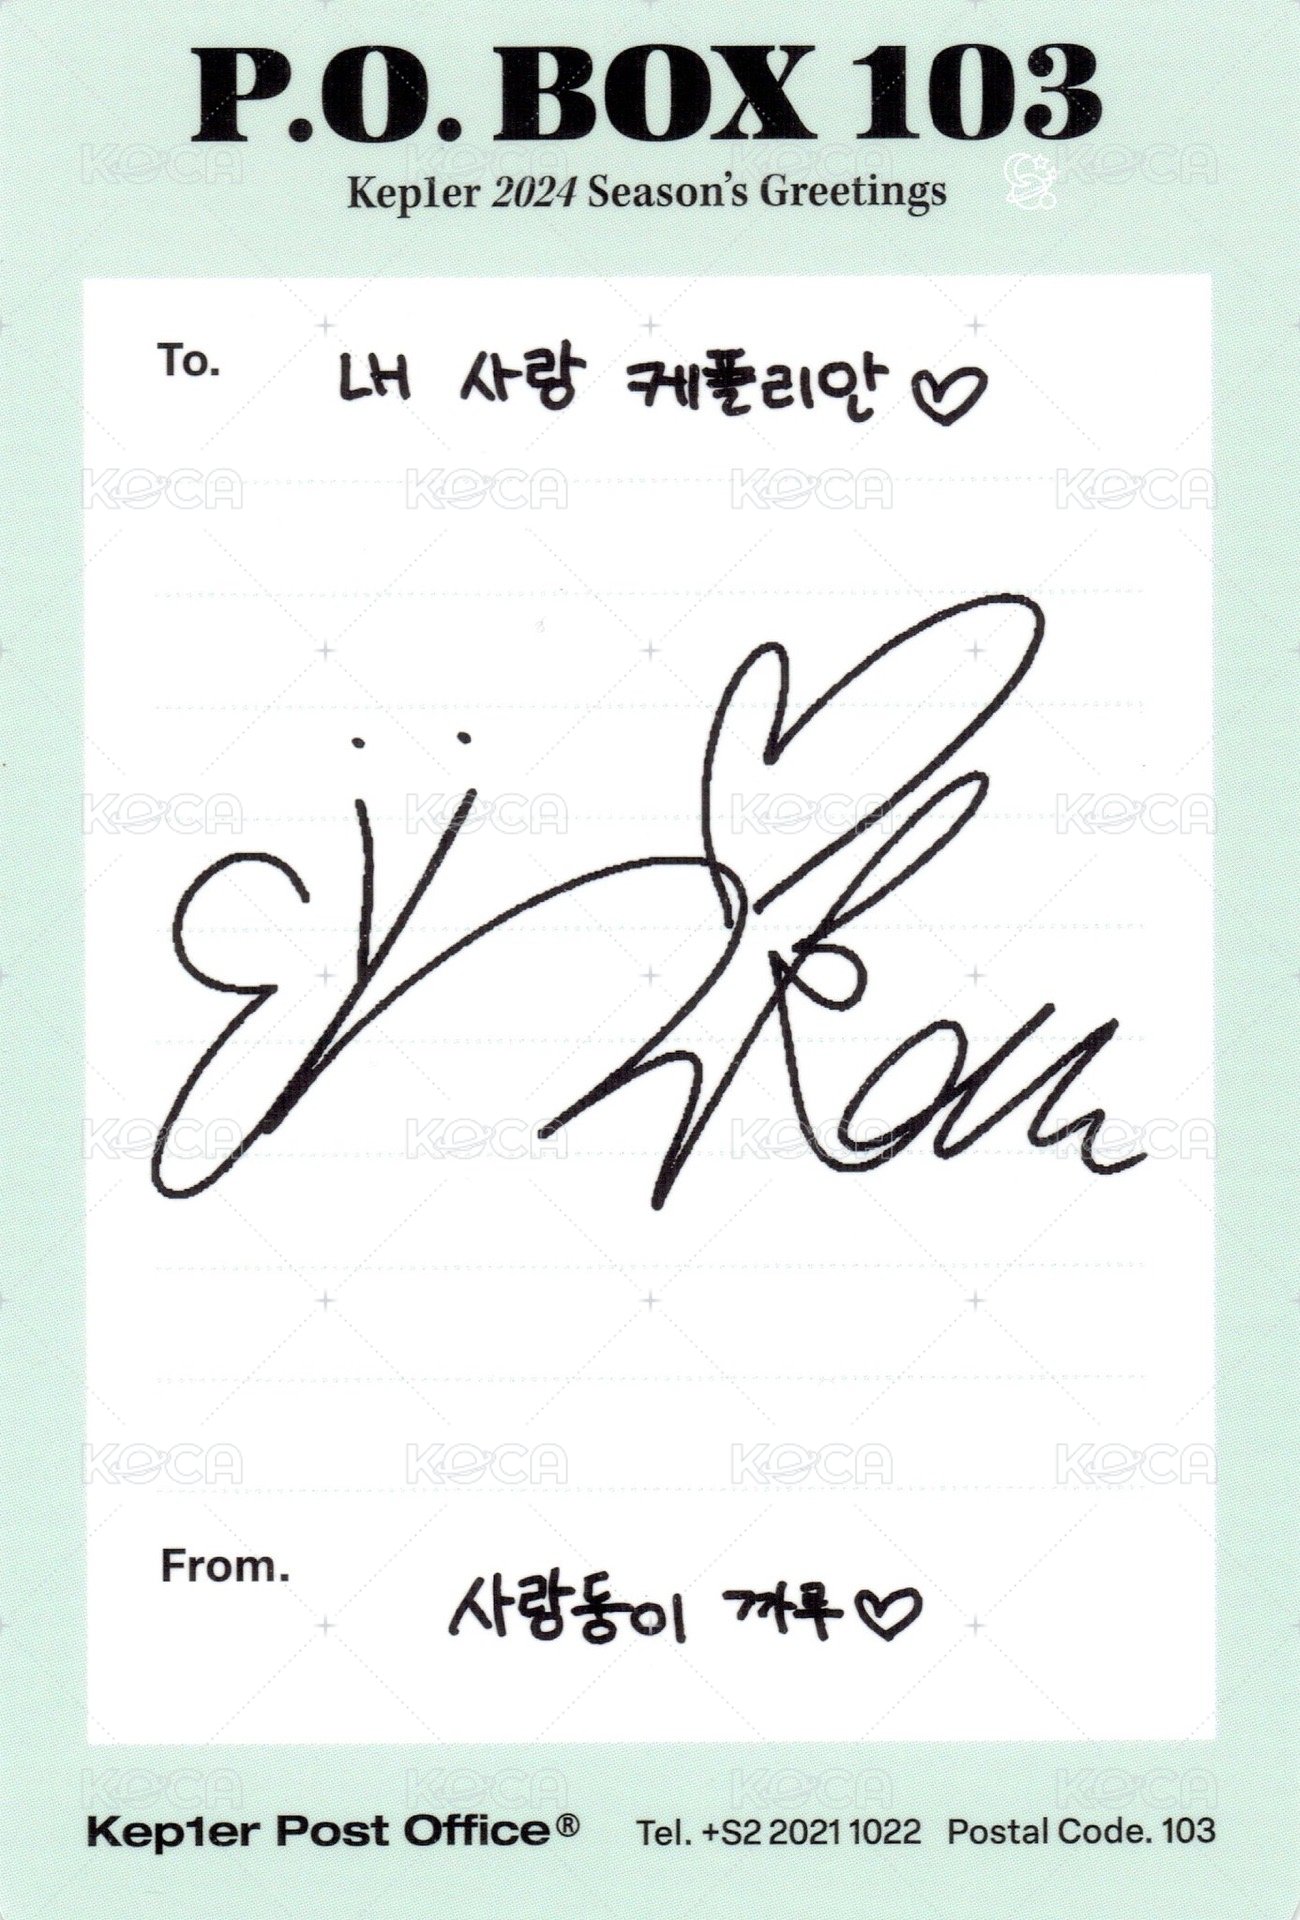 P.O. BOX 103
Kep1er 2024 Season's Greetings
To. 내 사랑 케플리안♡
From. 사랑둥이 까루♡
Kep1er Post Office® Tel. +S2 2021 1022 Postal Code. 103
KOCA